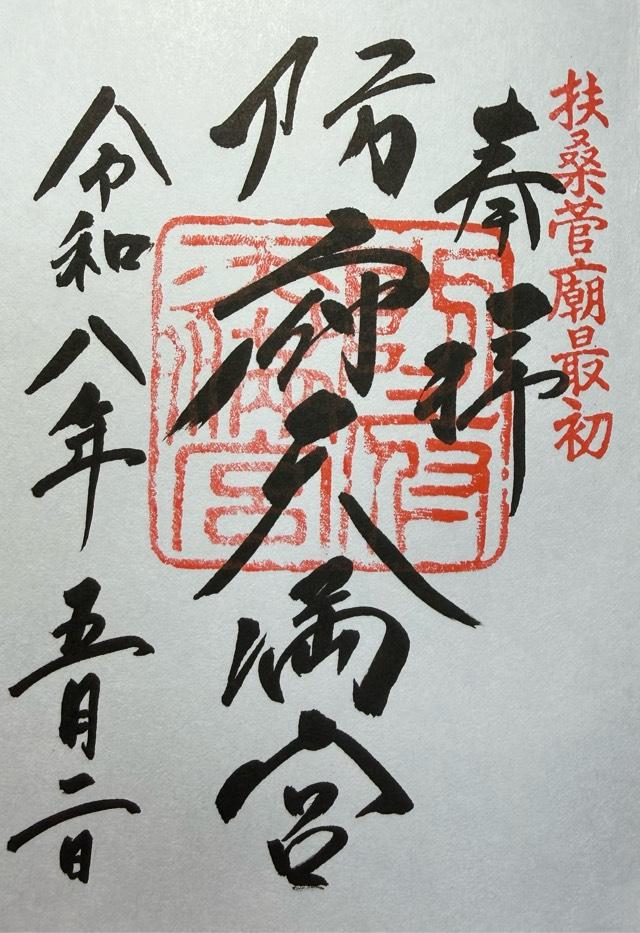 扶桑菅廟最初
奉拝
防府天満宮
防府
天満宮
令和八年 五月二日